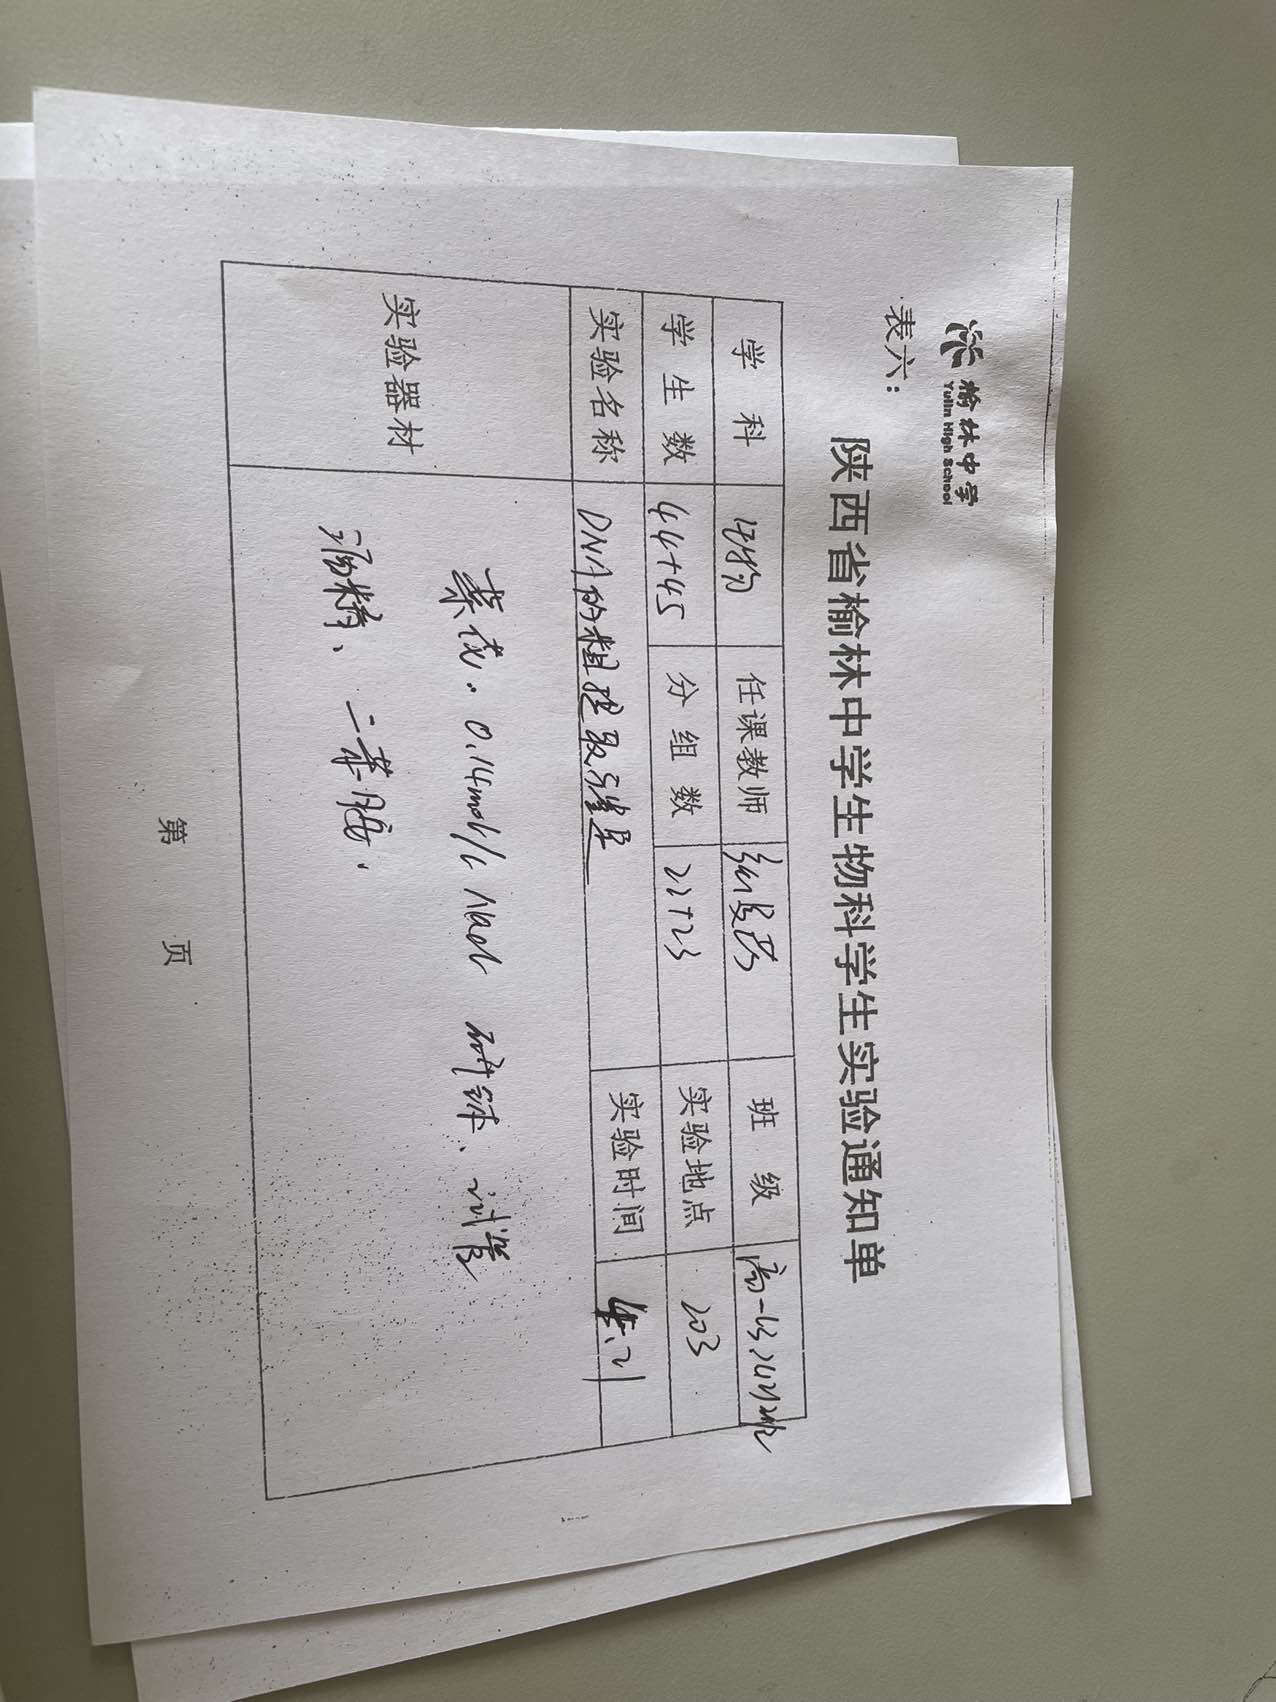 榆林中学
Yulin High School
表六：
陕西省榆林中学生物科学生实验通知单
学 科 生物 任课教师 班 级 高一
学 生 数 44+45 分 组 数 22+23 实验地点 203
实验名称 DNA的粗提取与鉴定 实验时间
实验器材
菜花. 0.14mol/L NaCl 研钵、试管
酒精、二苯胺.
第 页